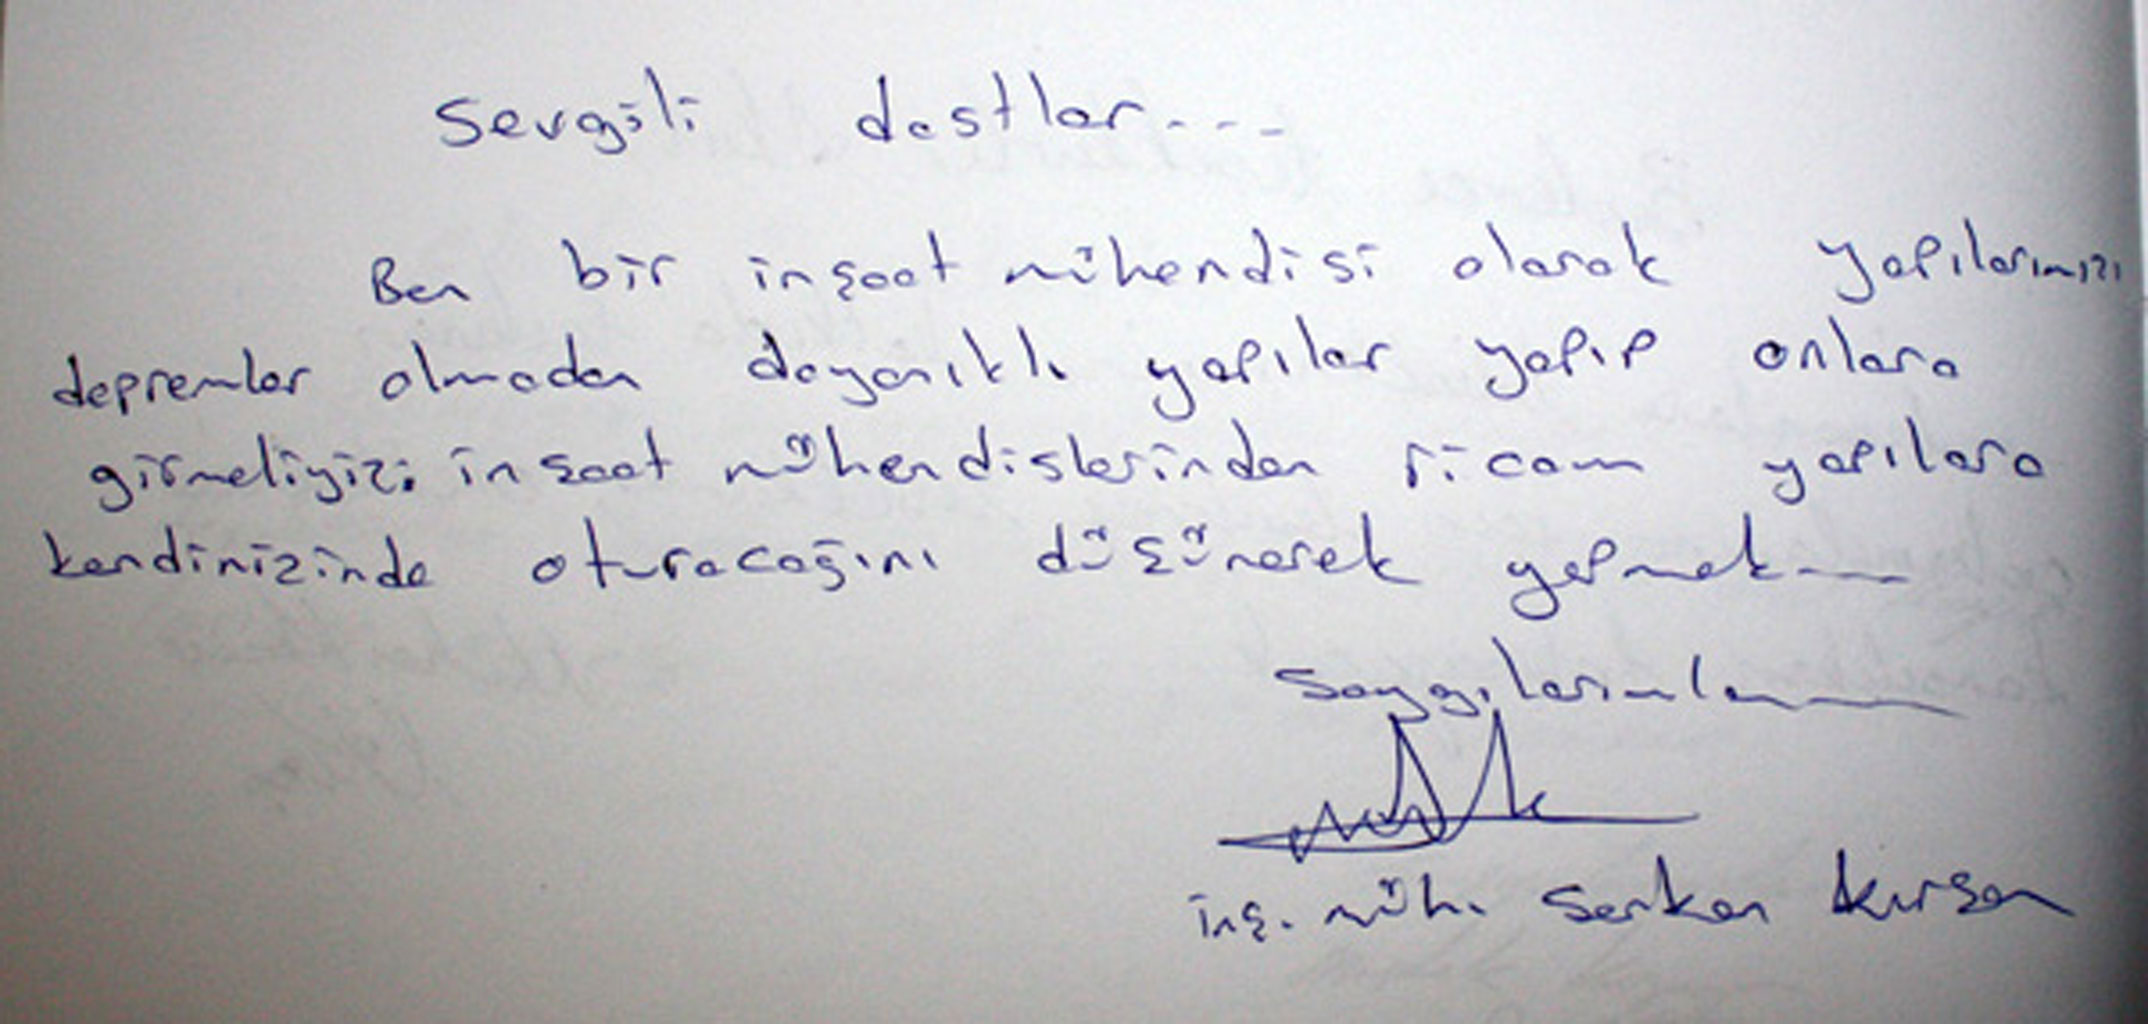 Sevgili dostlar...
Ben bir inşaat mühendisi olarak yapılarımızı
depremler olmadan dayanıklı yapılar yapıp onlara
girmeliyiz; inşaat mühendislerinden ricam yapılara
kendinizinde oturacağını düşünerek yapmak...
Saygılarımla
inş. müh. Serkan Kurşan